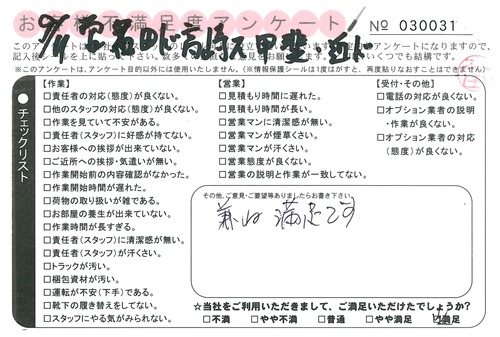 お客様不満足度アンケート
No 030031
記入後シールを上に貼って下さい。
いくつでも結構です。
※このアンケートは、アンケート目的以外には使用いたしません。(※情報保護シールは1度はがすと、再度貼りなおすことはできません)
チェックリスト
【作業】
□責任者の対応(態度)が良くない。
□他のスタッフの対応(態度)が良くない。
□作業を見ていて不安がある。
□責任者(スタッフ)に好感が持てない。
□お客様への挨拶が出来ていない。
□ご近所への挨拶・気遣いが無い。
□作業開始前の内容確認がなかった。
□作業開始時間が遅れた。
□荷物の取り扱いが雑である。
□お部屋の養生が出来ていない。
□作業時間が長すぎる。
□責任者(スタッフ)に清潔感が無い。
□責任者(スタッフ)が汗くさい。
□トラックが汚い。
□梱包資材が汚い。
□運転が不安(下手)である。
□靴下の履き替えをしてない。
□スタッフにやる気がみられない。
【営業】
□見積もり時間に遅れた。
□見積もり時間が長い。
□営業マンに清潔感が無い。
□営業マンが煙草くさい。
□営業マンが汗くさい。
□営業態度が良くない。
□営業の説明と作業が一致してない。
【受付・その他】
□電話の対応が良くない。
□オプション業者の説明
・作業が良くない。
□オプション業者の対応
(態度)が良くない。
その他、ご意見・ご要望等ありましたらお書き下さい。
兼ね満足です
☆当社をご利用いただきまして、ご満足いただけたでしょうか?
□不満 □やや不満 □普通 □やや満足 □満足